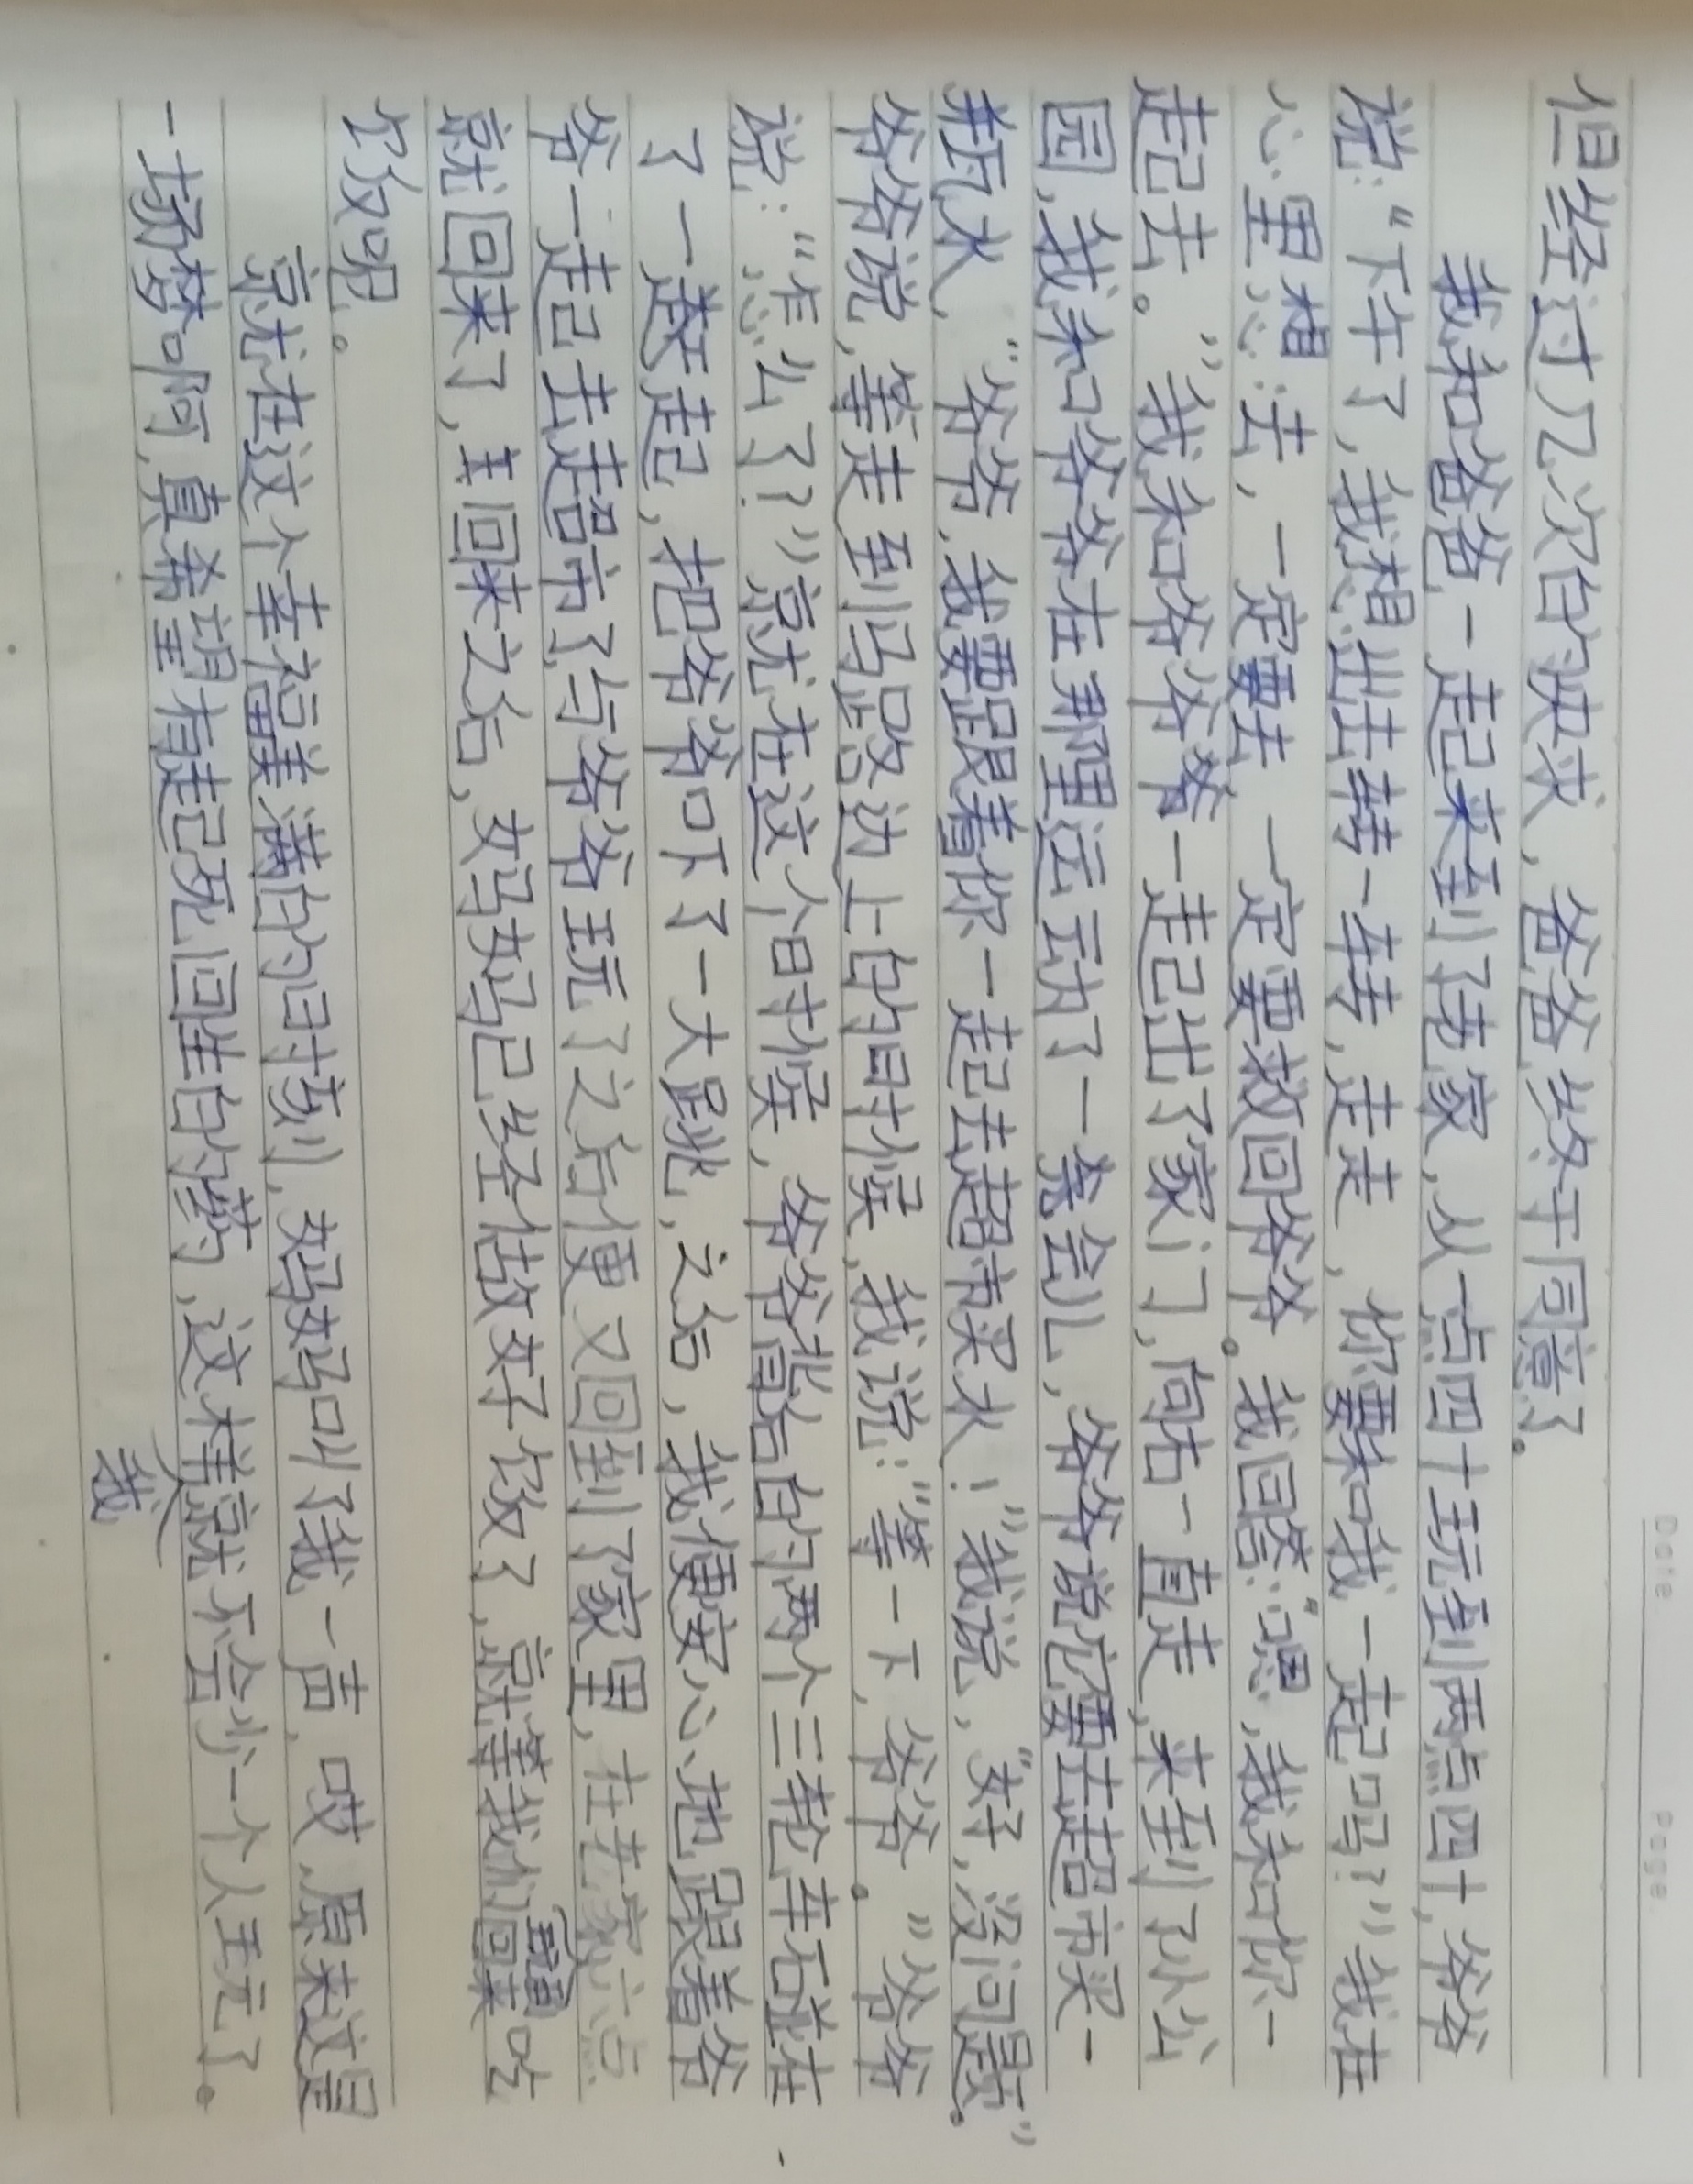 Date Page
但经过几次的快求，爸爸终于同意了。
我和爸爸一起来到了老家，从一点四十玩到两点四十，爷爷
说：“下午了，我想出去转一转，走走，你要和我一起吗？”我在
心里想：去，一定要去，一定要救回爷爷。我回答：“嗯，我和你一
起去。”我和爷爷一起出了家门，向右一直走，来到了小公
园，我和爷爷在那里运动了一会儿，爷爷说它要去超市买一
瓶水，“爷爷，我要跟着你一起去超市买水！”我说，“好，没问题。”
爷爷说，等走到马路边上的时候，我说：“等一下，爷爷。”爷爷
说：“怎么了？”就在这个时候，爷爷背后的两个三轮车碰在
了一起，把爷爷吓了一大跳，之后，我便安心地跟着爷
爷一起去超市了，与爷爷玩了之后便又回到了家里，在老家六点
就回来了，回来之后，妈妈已经做好饭了，就等我们回来吃
饭呢。
就在这个幸福美满的时刻，妈妈叫了我一声，哎，原来这是
一场梦啊，真希望有起死回生的药，这样就不会少一个人玩了。
我